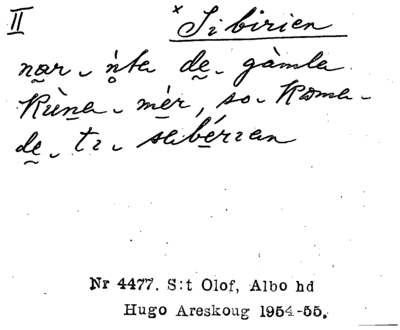 II × Sibirien
nar ńta de gàmla
kùna mér, so koma
de tı sebérıan
Nr 4477. S:t Olof, Albo hd
Hugo Areskoug 1954-55.